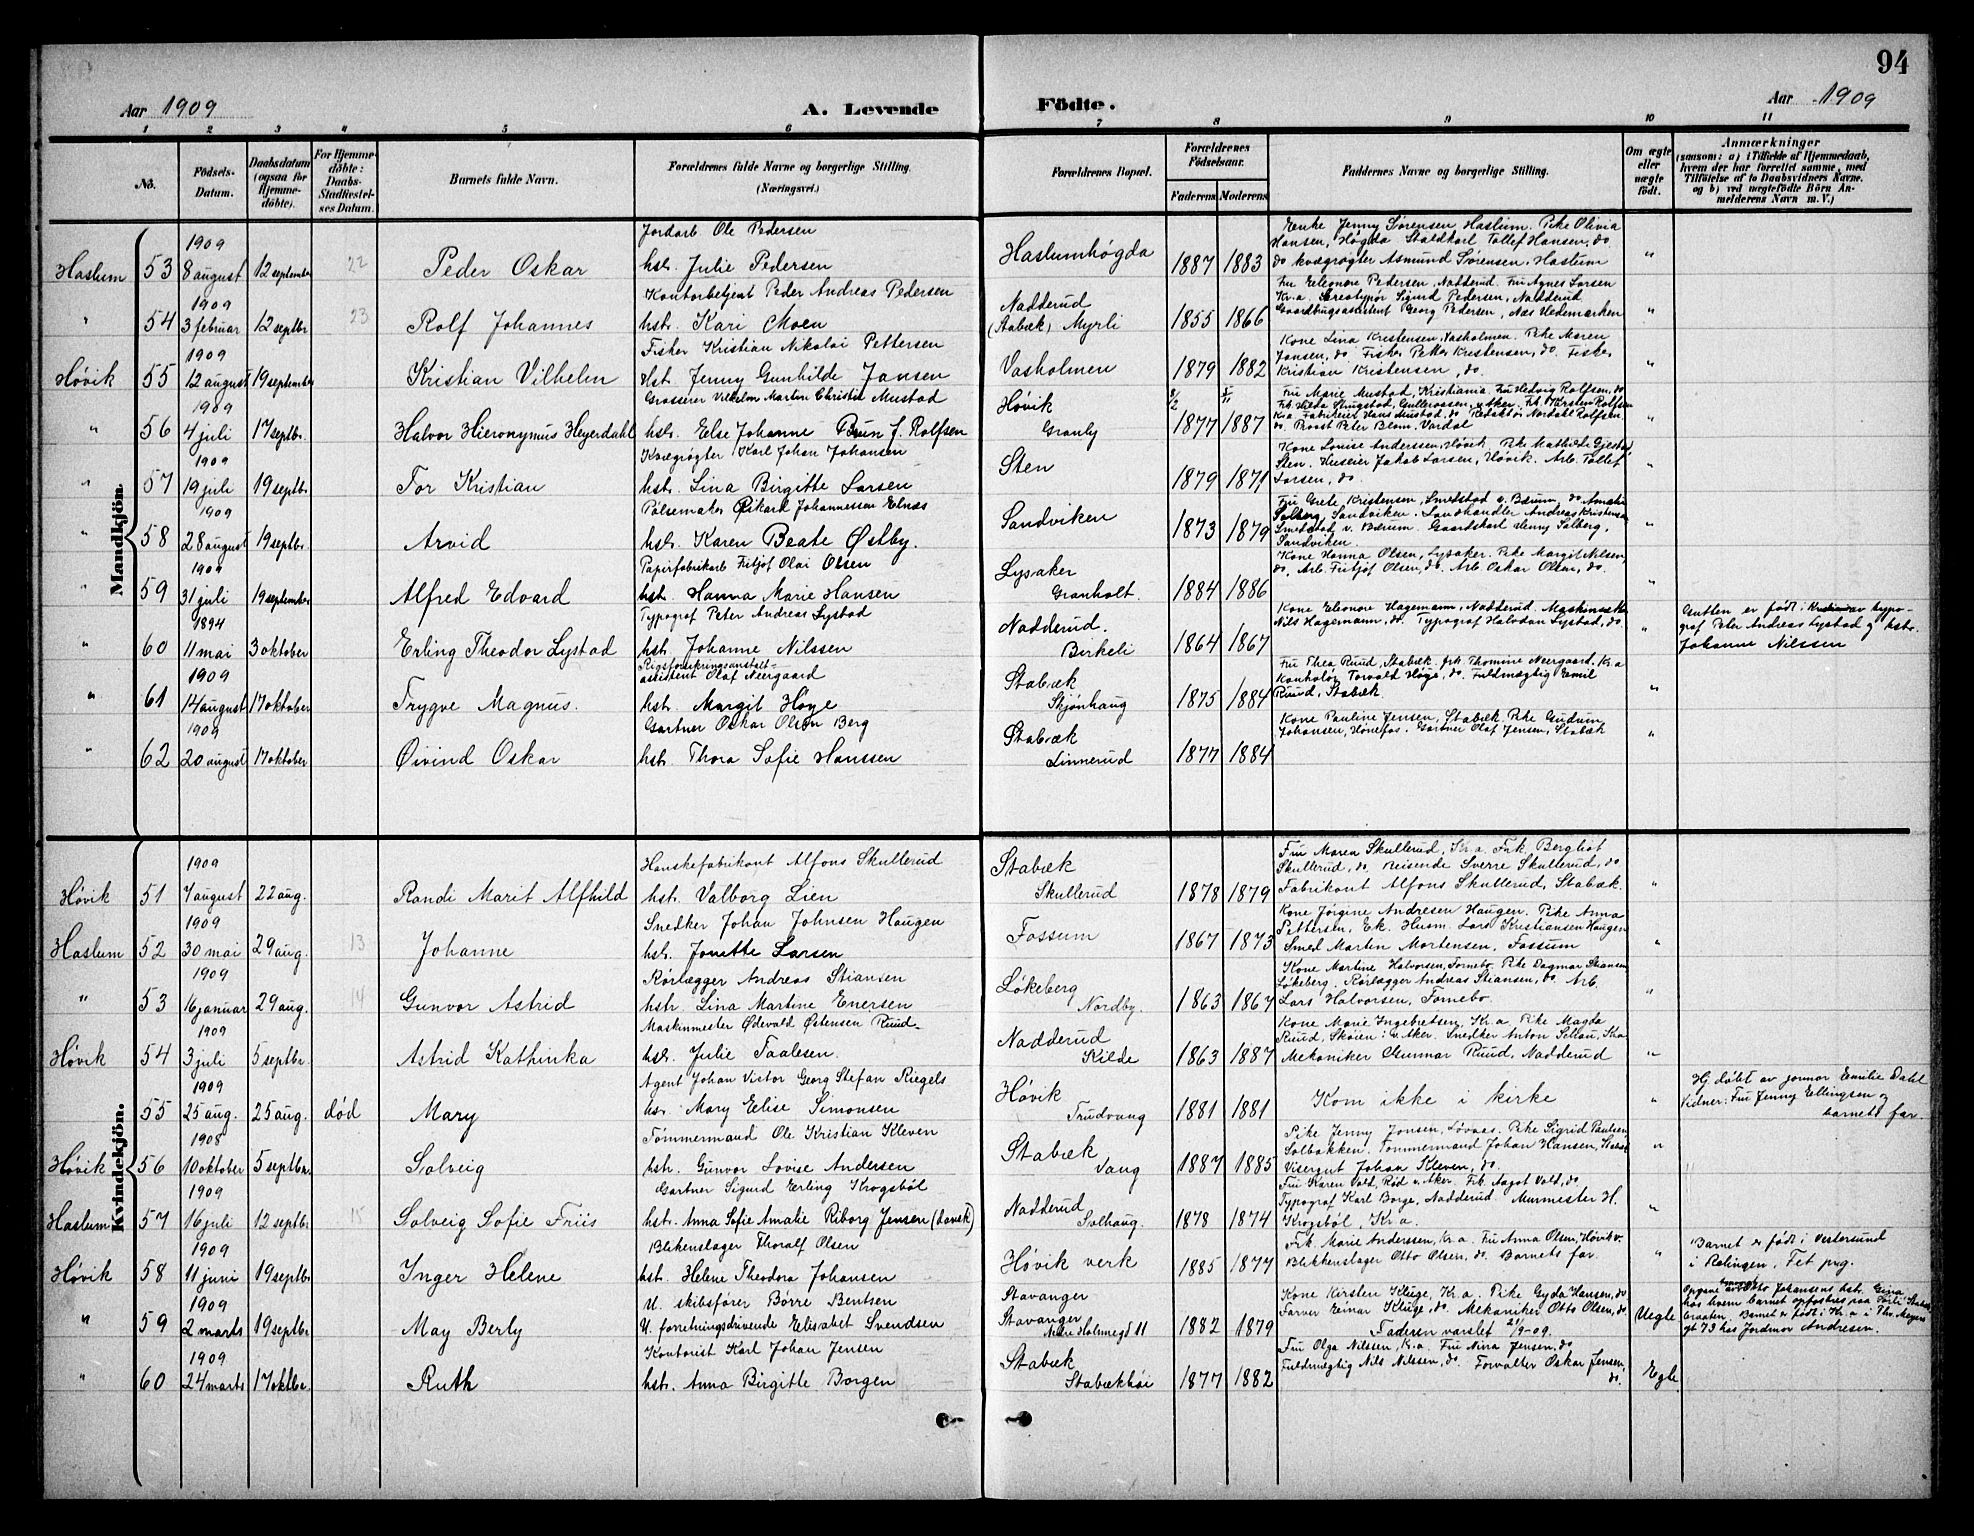 94
Aar 1909
A. Levende
Födte.
Aar 1909
1 2 3 4 5 6 7 8 9 10 11
No.
Födsels-Datum.
Daabsdatum (ogsaa för Hjemme-döbte).
For Hjemme-döbte: Daabs-Stadfæstel-ses Datum.
Barnets fulde Navn.
Forældrenes fulde Navne og borgerlige Stilling. (Næringsvei.)
Forældrenes Bopæl.
Forældrenes Födselsaar.
Faderens Moderens
Faddernes Navne og borgerlige Stilling.
Om ægte eller uægte födt.
Anmærkninger
(saasom: a) i Tilfælde af Hjemmedaab, hvem der har forrettet samme, med Tilföielse af to Daabsvidners Navne, og b) ved uægtefödte Börn An-melderens Navn m. V.)
Mandkjön.
1909
Haslum 53 8 august 12 september 22 Peder Oskar
Jordarb Ole Pedersen
hst. Julie Pedersen
Haslumhøgda 1887 1883
Enke Jenny Sørensen Haslum. Pike Olivia
Hansen, Høgda Staldkarl Tollef Hansen, do.
do kvægrøgter Asmund Sørensen, Haslum "
1909
" 54 3 februar 12 septbr 23 Rolf Johannes
Kontorbetjent Peder Andreas Pedersen
hst. Kari Moen
Nadderud
(Stabæk) Myrli 1855 1866
Fru Eleonore Pedersen, Nadderud. Fru Agnes Larsen
Kr.a. Stereotypør Sigurd Pedersen, Nadderud
Gaardbrugsassistent Georg Pedersen, Næs Hedemarken "
1909
Høvik 55 12 august 19 september Kristian Vilhelm
Fisker Kristian Nikolai Pettersen
Hst. Jenny Gunhilde Jansen
Vasholmen 1879 1882
Kone Lina Kristensen, Vasholmen. Pike Maren
Jansen, do. Fisker Petter Kristensen, do. Fisker
Kristian Kristensen, do. "
1909
" 56 4 juli 17 septbr. Halvor Hieronymus Heyerdahl
Grosserer Vilhelm Martin Christie Mustad
hst. Else Johanne Brun f. Rolfsen
Høvik
Granly 1877 1887
Fru Marie Mustad, Kristiania. Fru Hedvig Rolfsen, do.
Kr.a. Fabrikeier Hans Mustad, do Redaktør Nordahl Rolfsen,
do. Provst Peter Blom, Vardal "
1909
" 57 19 juli 19 septbr. Tor Kristian
Kvægrøgter Karl Johan Johansen
hst. Lina Birgitte Larsen
Sten 1879 1871
Kone Louise Anderssen, Høvik. Pike Mathilde Gjestad,
Sten. Huseier Jakob Larsen, Høvik. Arb. Tollef
Larsen, do. "
1909
" 58 28 august 19 septbr. Arvid
Pølsemaker Oskar Johannessen Elnæs
hst. Karen Beate Østby.
Sandviken 1873 1879
Fru Grete Kristensen, Smedstad v. Bærum, do Amalie
Solberg, Sandviken. Landhandler Andreas Kristensen
Smedstad v. Bærum. Gaardskarl Henry Solberg,
Sandviken. "
1909
" 59 31 juli 19 september Alfred Edvard
Papirfabrikarb Fritjof Olai Olsen
hst. Hanna Marie Hansen
Lysaker
Granholt. 1884 1886
Kone Hanna Olsen, Lysaker. Pike Margit Nilsen,
do. Arb. Fritjof Olsen, do. Arb Oskar Olsen, do. "
1894
" 60 11 mai 3 oktober Erling Theodor Lystad
Typograf Peter Andreas Lystad
hst. Johanne Nilssen
Nadderud.
Birkeli 1864 1867
Kone Eleonore Hagemann, Nadderud. Maskinsetter
Nils Hagemann, do. Typograf Halvdan Lystad, do. "
Gutten er født i Kristiania av typo-
graf Peter Andreas Lystad og hst.
Johanne Nilssen
1909
" 61 14 august 17 oktober Trygve Magnus.
Rigsforsikringsanstalt-
assistent Olaf Neergaard
hst. Margit Høye
Stabæk
Skjønhaug 1875 1884
Fru Thea Ruud, Stabæk. frk. Thomine Neergaard. Kr.a
Kontorist Torvald Høye, do. Fuldmægtig Emil
Ruud, Stabæk. "
1909
" 62 20 august 17 oktober Øivind Oskar
Gartner Oskar Olsen Berg
hst. Thora Sofie Hanssen
Stabæk
Linnerud 1877 1884
Kone Pauline Jensen, Stabæk. Pike Gudrun
Johansen, Hønefos. Gartner Olaf Jensen, Stabæk "
Kvindekjön.
1909
Høvik 51 7 august 22 aug. Randi Marit Alfhild
Hanskefabrikant Alfons Skullerud
hst. Valborg Lien
Stabæk
Skullerud 1878 1879
Fru Maren Skullerud, Kr.a. Frk. Bergliot
Skullerud, do. Reisende Sverre Skullerud, do
Fabrikant Alfons Skullerud, Stabæk. "
1909
Haslum 52 30 mai 29 aug. 13 Johanne
Snedker Johan Johnsen Haugen
hst. Jonette Larsen
Fossum 1867 1873
Kone Jørgine Andresen Haugen. Pike Anna
Pettersen, Ek. Husm. Lars Kristiansen Haugen
Smed Martin Mortensen, Fossum "
1909
" 53 16 januar 29 aug. 14 Gunvor Astrid
Rørlægger Andreas Stiansen
hst. Lina Martine Enersen
Løkeberg
Nordby. 1863 1867
Kone Martine Halvorsen, Fornebo. Pike Dagmar Stiansen
Løkeberg. Rørlægger Andreas Stiansen, do. Arb.
Lars Halvorsen, Fornebo. "
1909
Høvik 54 3 juli 5 septbr. Astrid Kathinka
Maskinmester Ødevald Østensen Ruud
hst. Julie Taalesen.
Nadderud
Kilde 1863 1887
Kone Marie Ingebretsen, Kr.a Pike Magda
Ruud, Skøien i v. Aker. Snedker Anton Sellau, Kr.a
Mekaniker Gunnar Ruud, Nadderud "
1909
55 25 aug. 25 aug. død Mary
Agent Johan Victor Georg Stefan Riegels
hst. Mary Elise Simonsen
Høvik
Trudvang 1881 1881
Kom ikke i kirke "
Hj døbt av jormor Emilie Dahl
Vidner: Fru Jenny Ellingsen og
barnets far.
1908
Høvik 56 10 oktober 5 septbr. Solveig
Tømmermand Ole Kristian Kleven
hst. Gunvor Lovise Andersen
Stabæk
Vang 1887 1885
Pike Jenny Jonsen, Løvnæs. Pike Sigrid Paulsen
Solbakken. Tømmermand Johan Hansen,
Visergut Johan Kleven, do. "
1909
Haslum 57 16 juli 12 septbr 15 Solveig Sofie Friis
Gartner Sigurd Erling Krogsbøl
hst. Anna Sofie Amalie Riborg Jensen (dansk)
Nadderud
Solhaug. 1878 1874
Fru Karen Vold, Rød v. Aker. Frk. Aagot Vold, do.
Typograf Karl Borge, Nadderud. Murmester H.
Krogsbøl, Kr.a. "
1909
Høvik 58 11 juni 19 septbr Inger Helene
Blikenslager Thoralf Olsen
hst. Helene Theodora Johansen
Høvik verk 1885 1877
Frk. Marie Anderssen, Kr.a. Fru Anna Olsen, Høvik v.
Blikkenslager Otto Olsen, do. Barnets far. "
Barnet er født i Vestersund
i Rælingen, Fet pgj.
1909
" 59 2 marts 19 septbr May Berly
U. skibsfører Børre Bentsen
U. forretningsdrivende Elisabet Svendsen
Stavanger
Stavanger
Nedre Holmegt 11 1882 1879
Kone Kirsten Kluge, Kr.a. Pike Gyda Hansen, do.
Farver Einar Kluge, do. Mekaniker Otto Olsen, do.
Faderen varslet 21/9-09. Uegte
Otto Johansens hst. Gina
hos hvem barnet opfostres paa
braaten. Barnet er født i Kr.a i Th. Meyers
gt 73 hos Jordmor Andresen.
1909
" 60 24 marts 17 oktbr. Ruth
Kontorist Karl Johan Jensen
hst. Anna Birgitte Borgen
Stabæk
Stabækhøi 1877 1882
Fru Olga Nilssen, Kr.a. Fru Nina Jensen, do
Fuldmægtig Nils Nilsen, do. Forvalter Oskar Jensen,
do. Egte